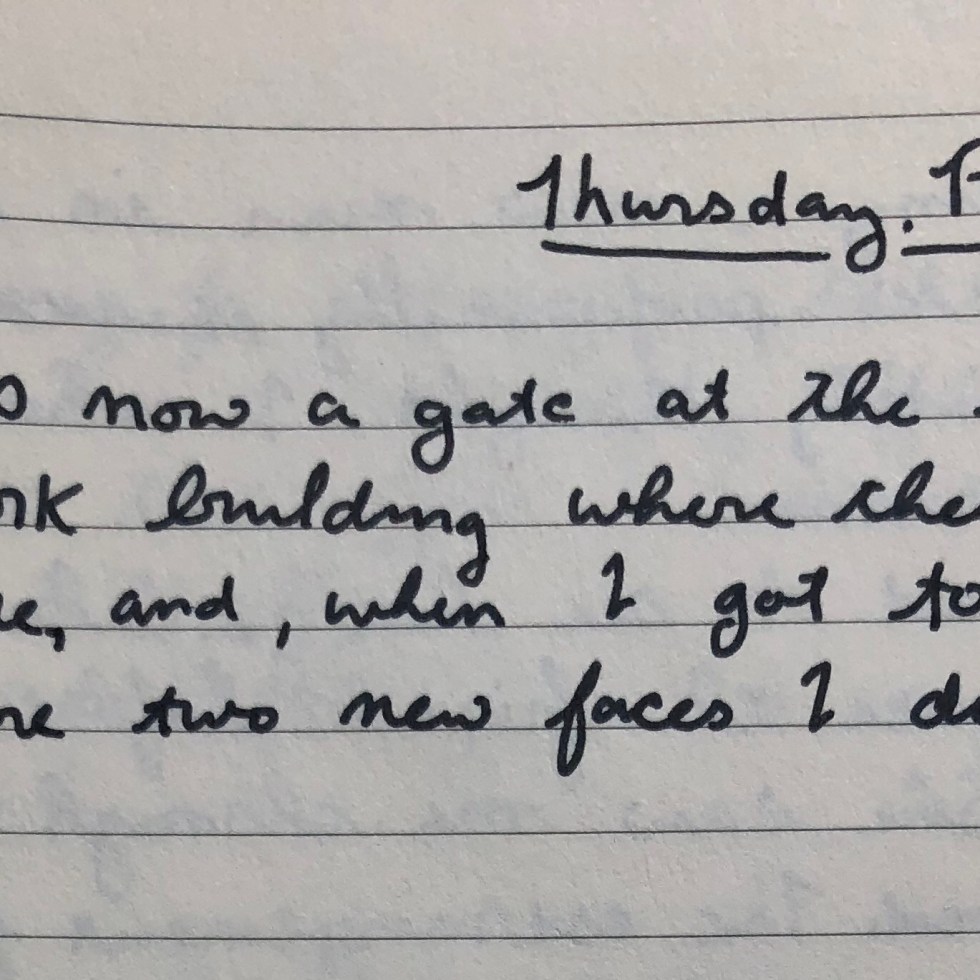 Thursday.
now a gate at the
building where
and, when I got to
two new faces I